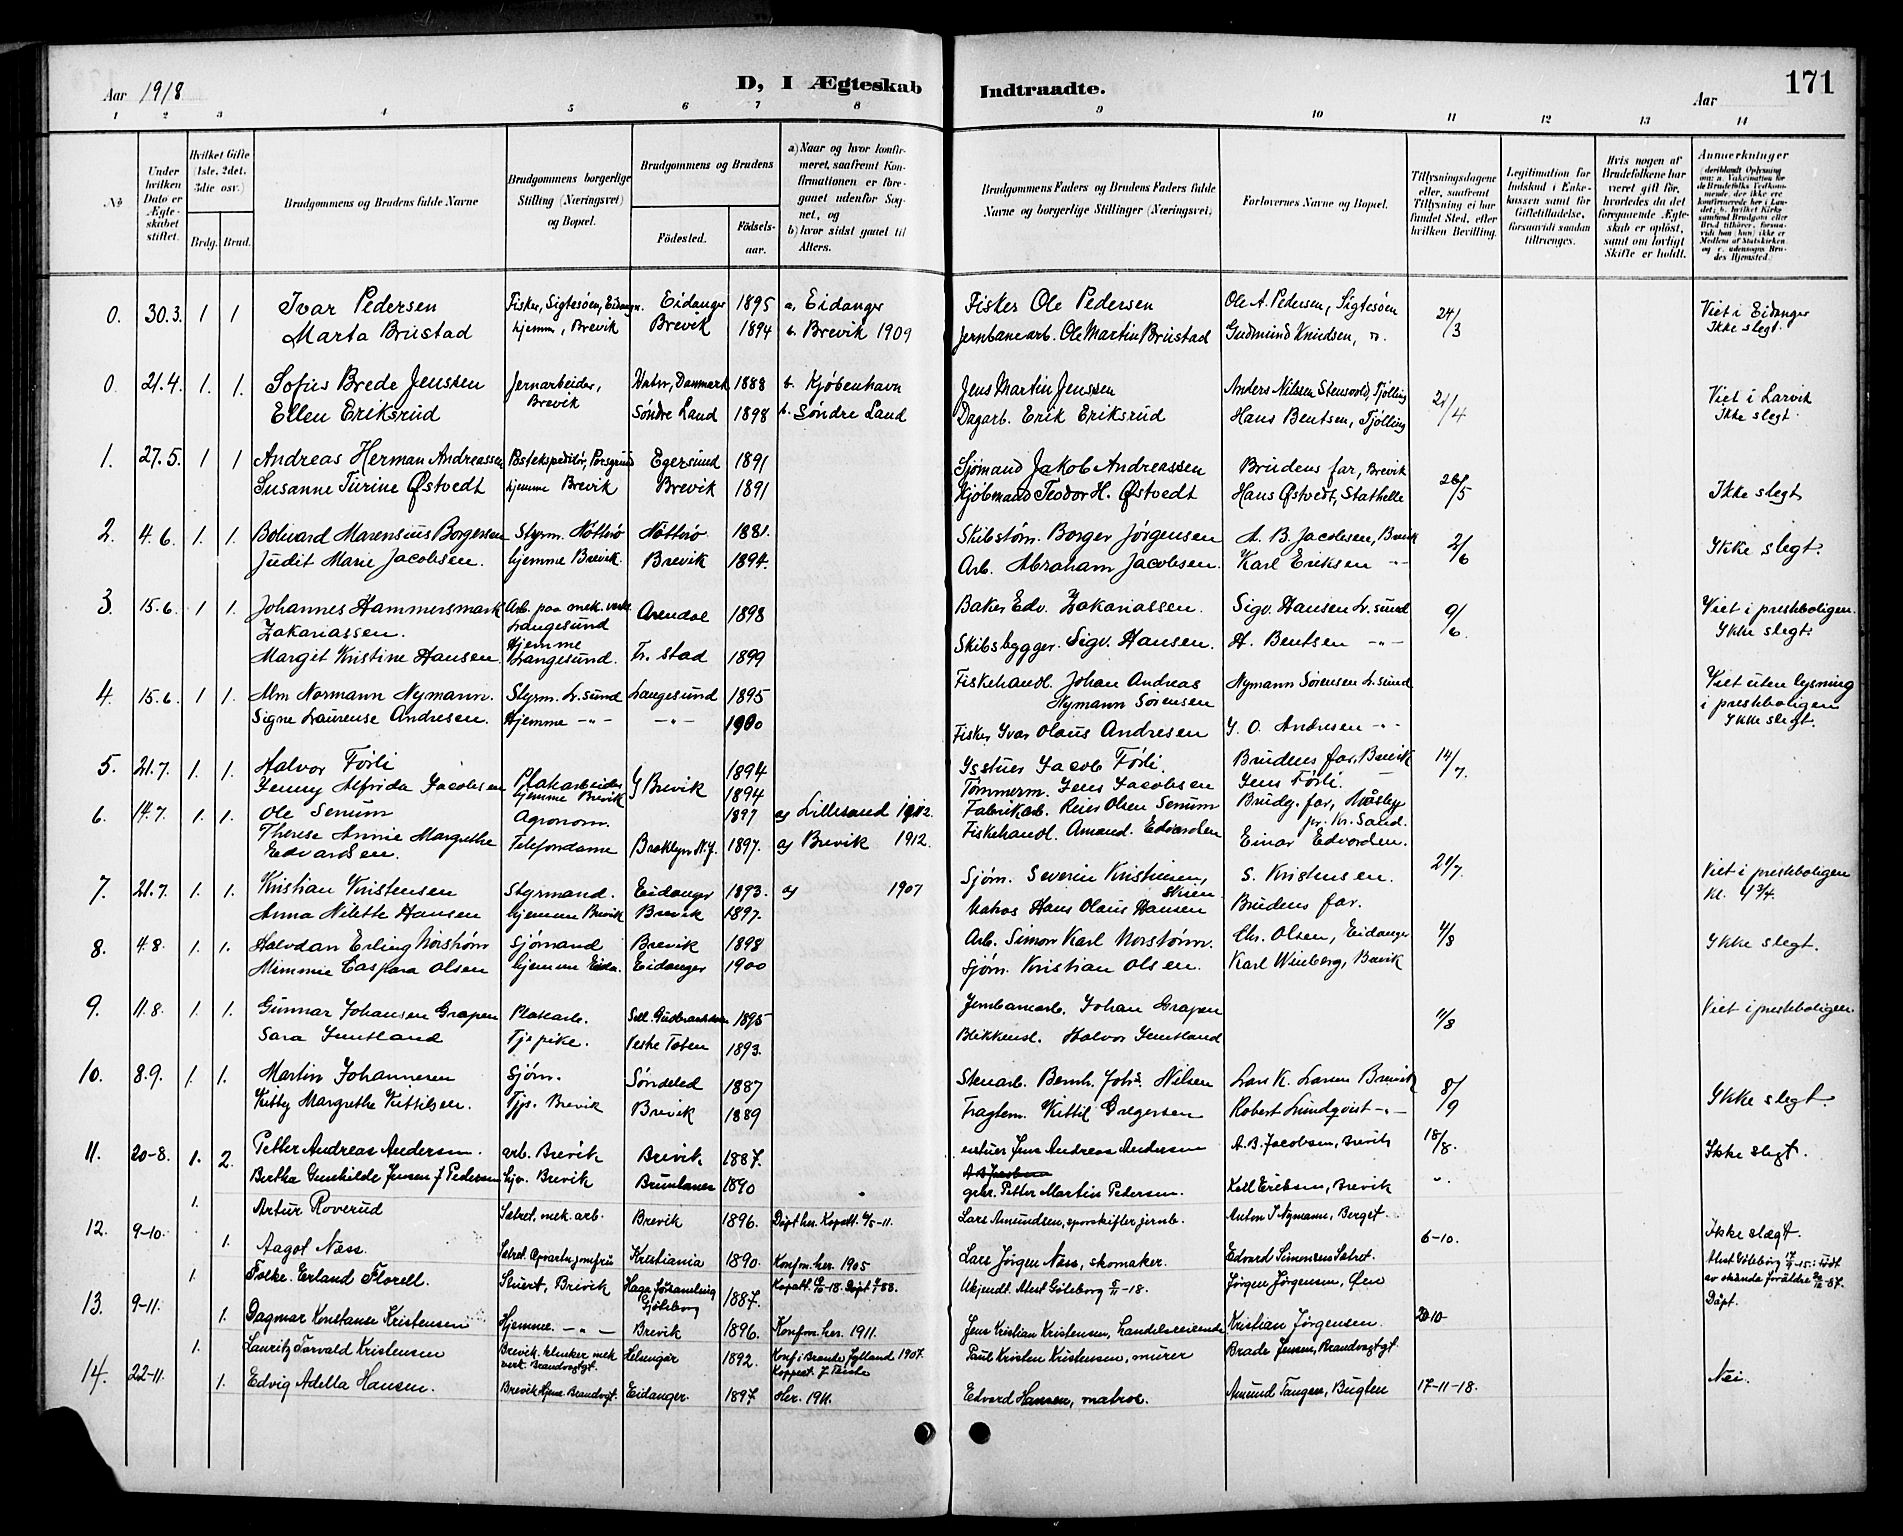 Aar 1918 D, I Ægteskab Indtraadte. Aar 171
1 2 3 4 5 6 7 8 9 10 11 12 13 14
No
Under hvilken Dato er Ægteskabet stiftet.
Hvilket Gifte (1ste, 2det, 3die osv.)
Brdg. Brud.
Brudgommens og Brudens fulde Navne
Brudgommens borgerlige Stilling (Næringsvei) og Bopæl.
Brudgommens og Brudens
Fødested. Fødselsaar.
a) Naar og hvor konfirmeret, saafremt Konfirmationen er foregaaet udenfor Sognet, og
b) hvor sidst gaaet til Alters.
Brudgommens Faders og Brudens Faders fulde Navne og borgerlige Stillinger (Næringsvei)
Forlovernes Navne og Bopæl.
Tillysningsdagene eller, saafremt Tillysning ei har fundet Sted, efter hvilken Bevilling.
Legitimation for Indskud i Enkekassen samt for Giftetilladelse, forsaavidt saadan tiltrænges.
Hvis nogen af Brudefolkene har været gift før, hvorledes da det foregaaende Ægteskab er opløst, samt om lovligt Skifte er holdt.
Anmerkninger
0. 30.3. 1 1 Ivar Pedersen Fisker, Sigtesøen, Eidanger. Eidanger 1895 a. Eidanger Fisker Ole Pedersen Ole A. Pedersen, Sigtesøen 24/3 Viet i Eidanger
Marta Brustad hjemme, Brevik Brevik 1894 b. Brevik 1909 Jernbanearb. Ole Martin Brustad Gudmund Knudsen, Ikke slegt.
0. 21.4. 1. 1. Sofus Brede Jenssen Jernarbeider, Brevik Danmark 1888 b. Kjøbenhavn Jens Martin Jenssen Anders Nilsen Stensvold, Tjølling 21/4 Viet i Larvik
Ellen Eriksrud Søndre Land 1898 b. Søndre Land Dagarb. Erik Eriksrud Hans Bentsen, Tjølling Ikke slegt.
1. 27.5. 1 1 Andreas Herman Andreassen Postekspeditør, Porsgrund Egersund 1891 Sjømand Jakob Andreassen Brudens far, Brevik 26/5
Susanne Turine Østvedt hjemme Brevik Brevik 1891 Kjøbmand Teodor H. Østvedt Hans Østvedt, Stathelle Ikke slegt
2. 4.6. 1. 1. Marensius Borgersen Styrm. Nøtterø Nøtterø 1881. Skibstøm. Borger Jørgensen A. B. Jacobsen, Brevik 2/6 Ikke slegt.
Judit Marie Jacobsen. hjemme Brevik. Brevik 1894. Arb. Abraham Jacobsen. Karl Eriksen -"-
3. 15.6. 1 1. Johannes Hammersmark Arb. paa mek. verk. Langesund Arendal 1898 Baker Edv. Zakariassen. Sigv. Hansen L.sund 9/6. Viet i prestboligen.
Zakariassen. Ikke slegt.
Margit Kristine Hansen Hjemme Langesund. Fr.stad 1899 Skibsbygger Sigv. Hansen. H. Bentsen -"-
4. 15.6. 1 1. Alm Normann Nymann. Styrm. L.sund Langesund 1895 Fiskehandl. Johan Andreas Nymann Sørensen Nymann Sørensen L.sund Viet uten lysning
Signe Laurense Andresen. Hjemme -"- -"- 1900 Fisker Ivar Olaus Andresen I. O. Andresen -"- i prestboligen Ikke slegt.
5. 21.7. 1. 1. Halvor Førli 1894 Isstuer Jacob Førli. Brudens far, Brevik 14/7.
Jenny Alfrida Jacobsen Platearbeider hjemme Brevik Brevik 1894 Tømmerm. Jens Jacobsen Jens Førli.
6. 14.7. 1. 1. Ole Senum Agronom. 1897 a) Lillesand 1912. Fabrikarb. Reier Olsen Senum Brudg. far, Mosby pr. Kr.Sand.
Therese Annie Margrethe Edvardsen. Telefondame Brooklyn N.J. 1897. a) Brevik 1912. Fiskehandl. Amand. Edvardsen Einar Edvardsen.
7. 21.7. 1. 1. Kristian Kristensen Styrmand. Eidanger 1893. a) 1907 Sjøm. Severin Kristensen, Skien S. Kristensen. 21/7. Viet i prestboligen
Anna Nilette Hansen hjemme Brevik Brevik 1897. Matros Hans Olaus Hansen Brudens far. Kl. 1 3/4.
8. 4.8. 1. 1. Halvdan Erling Norstrøm Sjømand Brevik 1898 Arb. Simon Karl Norstrøm. Chr. Olsen, Eidanger 4/8 Ikke slegt.
Mimmie Caspara Olsen hjemme Eida. Eidanger 1900 Sjøm. Kristian Olsen. Karl Winberg, Brevik
9. 11.8. 1. 1. Gunnar Johansen Grapen Platearb. 1895 Jernbanearb. Johan Grapen 11/8 Viet i prestboligen.
Sara Jemtland Tj.pike. Vestre Toten 1893. Blikkensl. Halvor Jemtland
10. 8.9. 1. 1. Martin Johannesen Sjøm. Søndeled 1887 Stenarb. Bernh. Johs. Nilsen Lars K. Larsen Brevik 8/9 Ikke slegt.
Kitty Margrethe Kittilsen. Tjs. Brevik Brevik 1889 Fragtem. Kittil Gregersen Robert Lundqvist -"-
11. 20-8. 1. 2. Petter Andreas Andersen. arb. Brevik Brevik 1887. isstuer Jens Andreas Andersen A. B. Jacobsen, Brevik 18/8. Ikke slegt.
Bertha Gunhilde Jensen f Pedersen hj. Brevik Brunlanes 1890 Petter Martin Pedersen. Karl Eriksen, Brevik
12. 9-10. 1. Artur Roverud Salret, mek. arb. Brevik 1896. Døpt her. Lars Amundsen, sporskifter jernb. Anton J Nymann, Berget. 6-10. Ikke slægt.
1. Aagot Næss. Salret. Opvartn.jomfru Kristiania 1890. Konfm. her. 1905 Lars Jørgen Næss, skomaker. Edvard Simonsen Salret.
13. 9-11. 1. Folke Erland Florell. Skuert, Brevik Haga församling Gjöteborg 1887. Ukjendt. Atest Göteborg 5/11-18. Jørgen Jørgensen, Øen Atest Göteborg 17/9-15: född av okända föräldre 20/12-87. Døpt.
1. Dagmar Konstanse Kristensen Hjemme. -"- Brevik 1896. Konfm. her. 1911. Jens Kristian Kristensen, handelsreisende Kristian Jørgensen. 20-10-
14. 22-11. 1. Lauritz Torvald Kristensen Brevik. klinker mek verk. Brandvagtgt. Helsingør 1892. Konf i Brande Jylland 1907. Paul Kristen Kristensen, murer Brade Jensen, Brandvagtgt. Nei.
1. Edvig Adella Hansen. Brevik Hjem. Brandvgt. Eidanger. 1897. Her. 1911. Edvard Hansen, matros. Amund Tangen, Bugten 17-11-18.